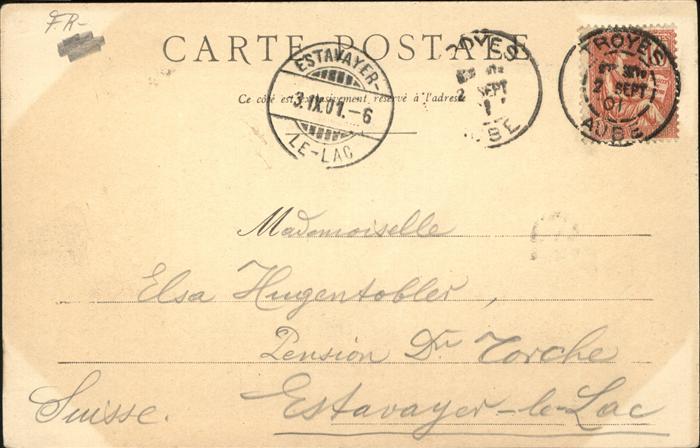 FR-
CARTE POSTALE
Ce côté est exclusivement réservé à l'adresse
ESTAVAYER-
3.IX.01.-6
LE-LAC
OYES
2 SEPT
BE
TROYES
2 SEPT
01
AUBE
Mademoiselle
Elsa Hugentobler,
Pension Dr. Torche
Suisse. Estavayer-le-Lac